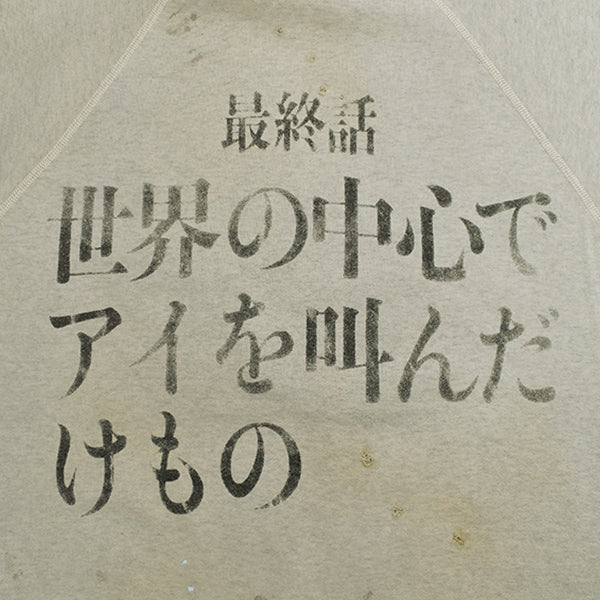 最終話
世界の中心で
アイを叫んだ
けもの